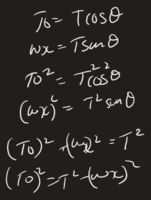 T₀ = T cos θ
wx = T sin θ
T₀² = T² cos² θ
(wx)² = T² sin θ
(T₀)² + (wx)² = T²
(T₀)² = T² - (wx)²